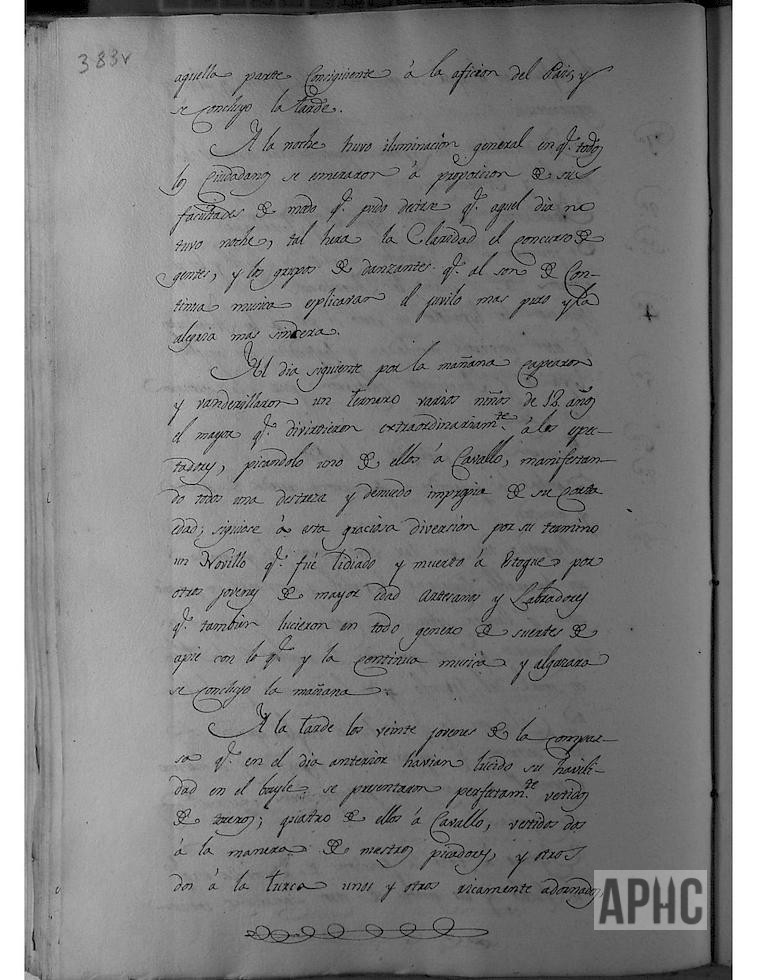 383v
aquella parte Consiguiente á la aficion del Pais, y
se Concluyo la tarde.
A la noche huvo iluminacion general en q.e todos
los Ciudadanos se esmeraron á proposicion de sus
facultades de modo q.e pudo decirse q.e aquel dia no
tuvo noche, tal hera la Claridad el concurso de
gentes, y los grupos de danzantes q.e al son de Con-
tinua musica esplicavan el juvilo mas puro y la
alegria mas sincera.
Al dia siguiente por la mañana Capearon
y vanderillaron un ternero varios niños de 12 años
el mayor q.e divirtieron extraordinariam.te á los espec-
tadores, picandolo uno de ellos á Cavallo, manifestan-
do todos una destreza y denuedo impropia de su Corta
edad; siguiose á esta graciosa diversion por su termino
un Novillo q.e fué lidiado y muerto á Estoque por
otros jovenes de mayor edad Artesanos y Labradores
q.e tambien lucieron en todo genero de suertes de
apie con lo q.e y la continua musica y algazara
se Concluyo la mañana.
A la tarde los veinte jovenes de la compar-
sa q.e en el dia anterior havian lucido su havili-
dad en el bayle se presentaron perfectam.te vestidos
de toreros; quatro de ellos á Cavallo, vestidos dos
á la manera de nuestros picadores, y otros
dos á la turca unos y otros ricamente adornados
APHC